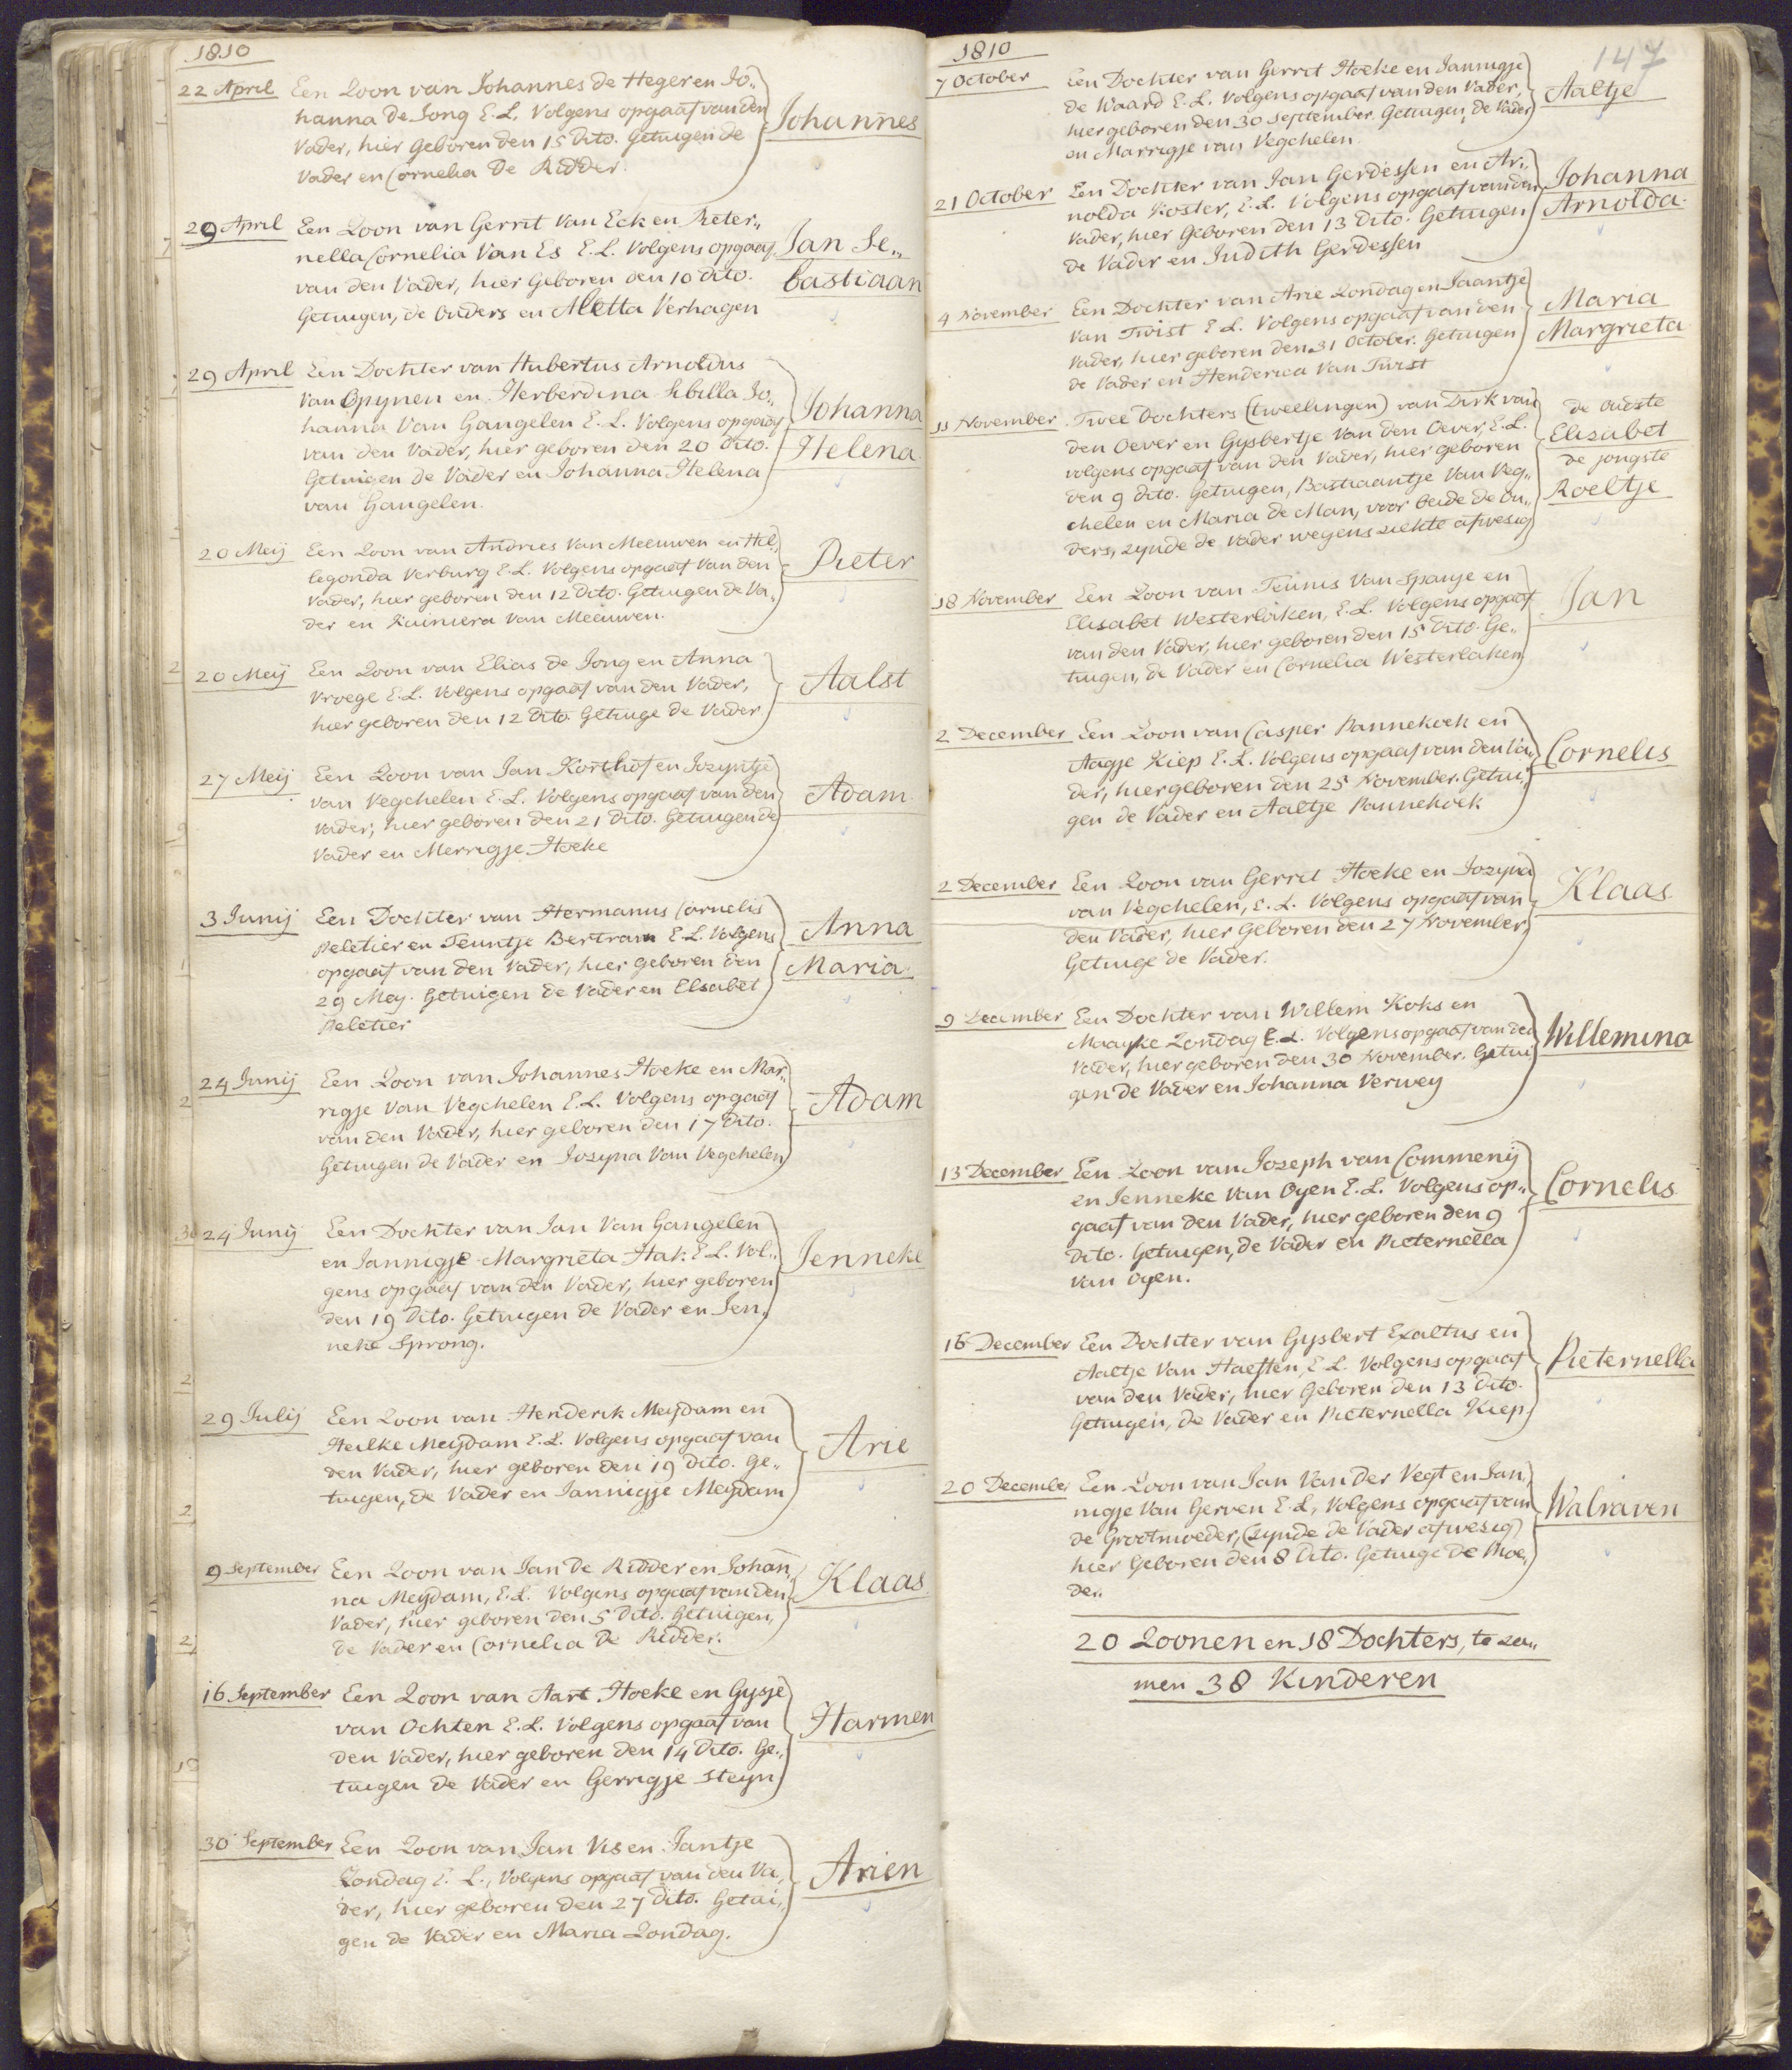 1810
22 April Een Zoon van Johannes de Heger en Jo„
hanna de Jong E.L. Volgens opgaaf van den
Vader, hier Geboren den 15 Dito. Getuigen de
Vader en Cornelia De Ridder.
Johannes
29 April Een Zoon van Gerrit Van Eck en Pieter„
nella Cornelia Van Es E.L. Volgens opgaaf
van den Vader, hier Geboren den 10 Dito.
Getuigen, de Ouders en Aletta Verhagen
Jan Se„
bastiaan
29 April Een Dochter van Hubertus Arnoldus
Van Opynen en Herberdina Sibilla Jo„
hanna Van Gangelen E.L. Volgens opgaaf
van den Vader, hier geboren den 20 Dito.
Getuigen de Vader en Johanna Helena
van Gangelen.
Johanna
Helena
20 Meij Een Zoon van Andries Van Meeuwen en Hil„
legonda Verburg E.L. Volgens opgaaf Van den
Vader, hier geboren den 12 Dito. Getuigen de Va„
der en Luiniera Van Meeuwen.
Pieter
20 Meij Een Zoon van Elias de Jong en Anna
Vroege E.L. Volgens opgaaf van den Vader,
hier geboren den 12 Dito Getuige de Vader
Aalst
27 Meij Een Zoon van Jan Korthof en Jozyntje
van Vegchelen E.L. Volgens opgaaf van den
Vader, hier geboren den 21 Dito. Getuigen de
Vader en Merrigje Hoeke
Adam
3 Junij Een Dochter van Hermanus Cornelis
Peletier en Teuntje Bertram E.L. Volgens
opgaaf van den Vader, hier geboren den
29 Mey. Getuigen de Vader en Elsabet
Peletier
Anna
Maria
24 Junij Een Zoon van Johannes Hoeke en Mar„
rigje Van Vegchelen E.L. Volgens opgaaf
van den Vader, hier geboren den 17 Dito.
Getuigen de Vader en Jozyna Van Vegchelen
Adam
24 Junij Een Dochter van Jan Van Gangelen
en Jannigje Margrieta Hak E.L. Vol„
gens opgaaf van den Vader, hier geboren
den 19 Dito. Getuigen de Vader en Jen„
neke Sprong.
Jenneke
29 Julij Een Zoon van Henderik Meydam en
Heilke Meydam E.L. Volgens opgaaf van
den Vader, hier geboren den 19 Dito. Ge„
tuigen, de Vader en Jannigje Meydam
Arie
9 September Een Zoon van Jan De Ridder en Johan„
na Meydam, E.L. Volgens opgaaf van den
Vader, hier geboren den 5 Dito. Getuigen,
de Vader en Cornelia De Ridder.
Klaas
16 September Een Zoon van Aart Hoeke en Gysje
van Ochten E.L. Volgens opgaaf van
den Vader, hier geboren den 14 Dito. Ge„
tuigen de Vader en Gerrigje Steyn
Harmen
30 September Een Zoon van Jan Vis en Jantje
Zondag E.L., Volgens opgaaf van den Va„
der, hier geboren den 27 Dito. Getui„
gen de Vader en Maria Zondag.
Arien
1810
147
7 October Een Dochter van Gerrit Hoeke en Jannigje
de Waard E.L. Volgens opgaaf van den Vader,
hier geboren den 30 September. Getuigen, de Vader
en Marrigje van Vegchelen.
Aaltje
21 October Een Dochter van Jan Gerdessen en Ar„
nolda Koster, E.L. Volgens opgaaf van den
Vader, hier Geboren den 13 Dito. Getuigen
de Vader en Judith Gerdessen
Johanna
Arnolda
4 November Een Dochter van Arie Zondag en Jaantje
Van Twist E.L. Volgens opgaaf van den
Vader, hier geboren den 31 October. Getuigen
de Vader en Henderica Van Twist
Maria
Margrieta
11 November Twee Dochters (tweelingen) van Dirk van
den Oever en Gysbertje Van den Oever, E.L.
volgens opgaaf van den Vader, hier geboren
den 9 Dito. Getuigen, Bastiaantje Van Veg„
chelen en Maria de Man, voor beide de Ou„
ders, zynde de Vader wegens ziekte afwesig
de oudste
Elisabet
de jongste
Roeltje
18 November Een Zoon van Teunis Van Spanje en
Elisabet Westerlaken, E.L. Volgens opgaaf
van den Vader, hier geboren den 15 Dito. Ge„
tuigen, de Vader en Cornelia Westerlaken
Jan
2 December Een Zoon van Casper Pannekoek en
Aagje Kiep E.L. Volgens opgaaf van den Va„
der, hier geboren den 25 November. Getui„
gen de Vader en Aaltje Pannekoek
Cornelis
2 December Een Zoon van Gerrit Hoeke en Jozyna
van Vegchelen, E.L. Volgens opgaaf van
den Vader, hier Geboren den 27 November,
Getuige de Vader.
Klaas
9 December Een Dochter van Willem Koks en
Maayke Zondag E.L. Volgens opgaaf van den
Vader, hier geboren den 30 November. Getui
gen de Vader en Johanna Verwey
Willemina
13 December Een Zoon van Jozeph van Commenij
en Jenneke Van Oyen E.L. Volgens op„
gaaf van den Vader, hier geboren den 9
Dito. Getuigen, de Vader en Pieternella
van Oyen.
Cornelis
16 December Een Dochter van Gysbert Exaltus en
Aaltje Van Haeften, E.L. Volgens opgaaf
van den Vader, hier Geboren den 13 Dito.
Getuigen, de Vader en Pieternella Kiep
Pieternella
20 December Een Zoon van Jan Van Der Vegt en Jan„
nigje Van Gerven E.L, Volgens opgaaf van
de Grootmoeder, (zynde de Vader afwesig)
hier Geboren den 8 Dito. Getuige De Moe„
der.
Walraven
20 Zoonen en 18 Dochters, te za„
men 38 Kinderen